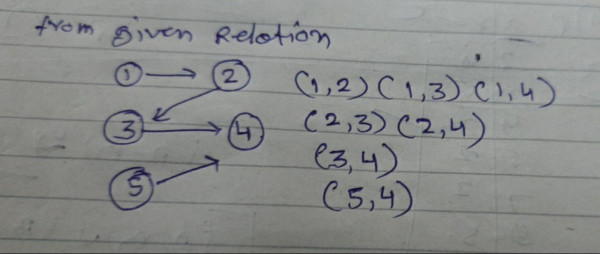 from given Relation
1 → 2 (1,2) (1,3) (1,4)
3 → 4 (2,3) (2,4)
(3,4)
5 (5,4)